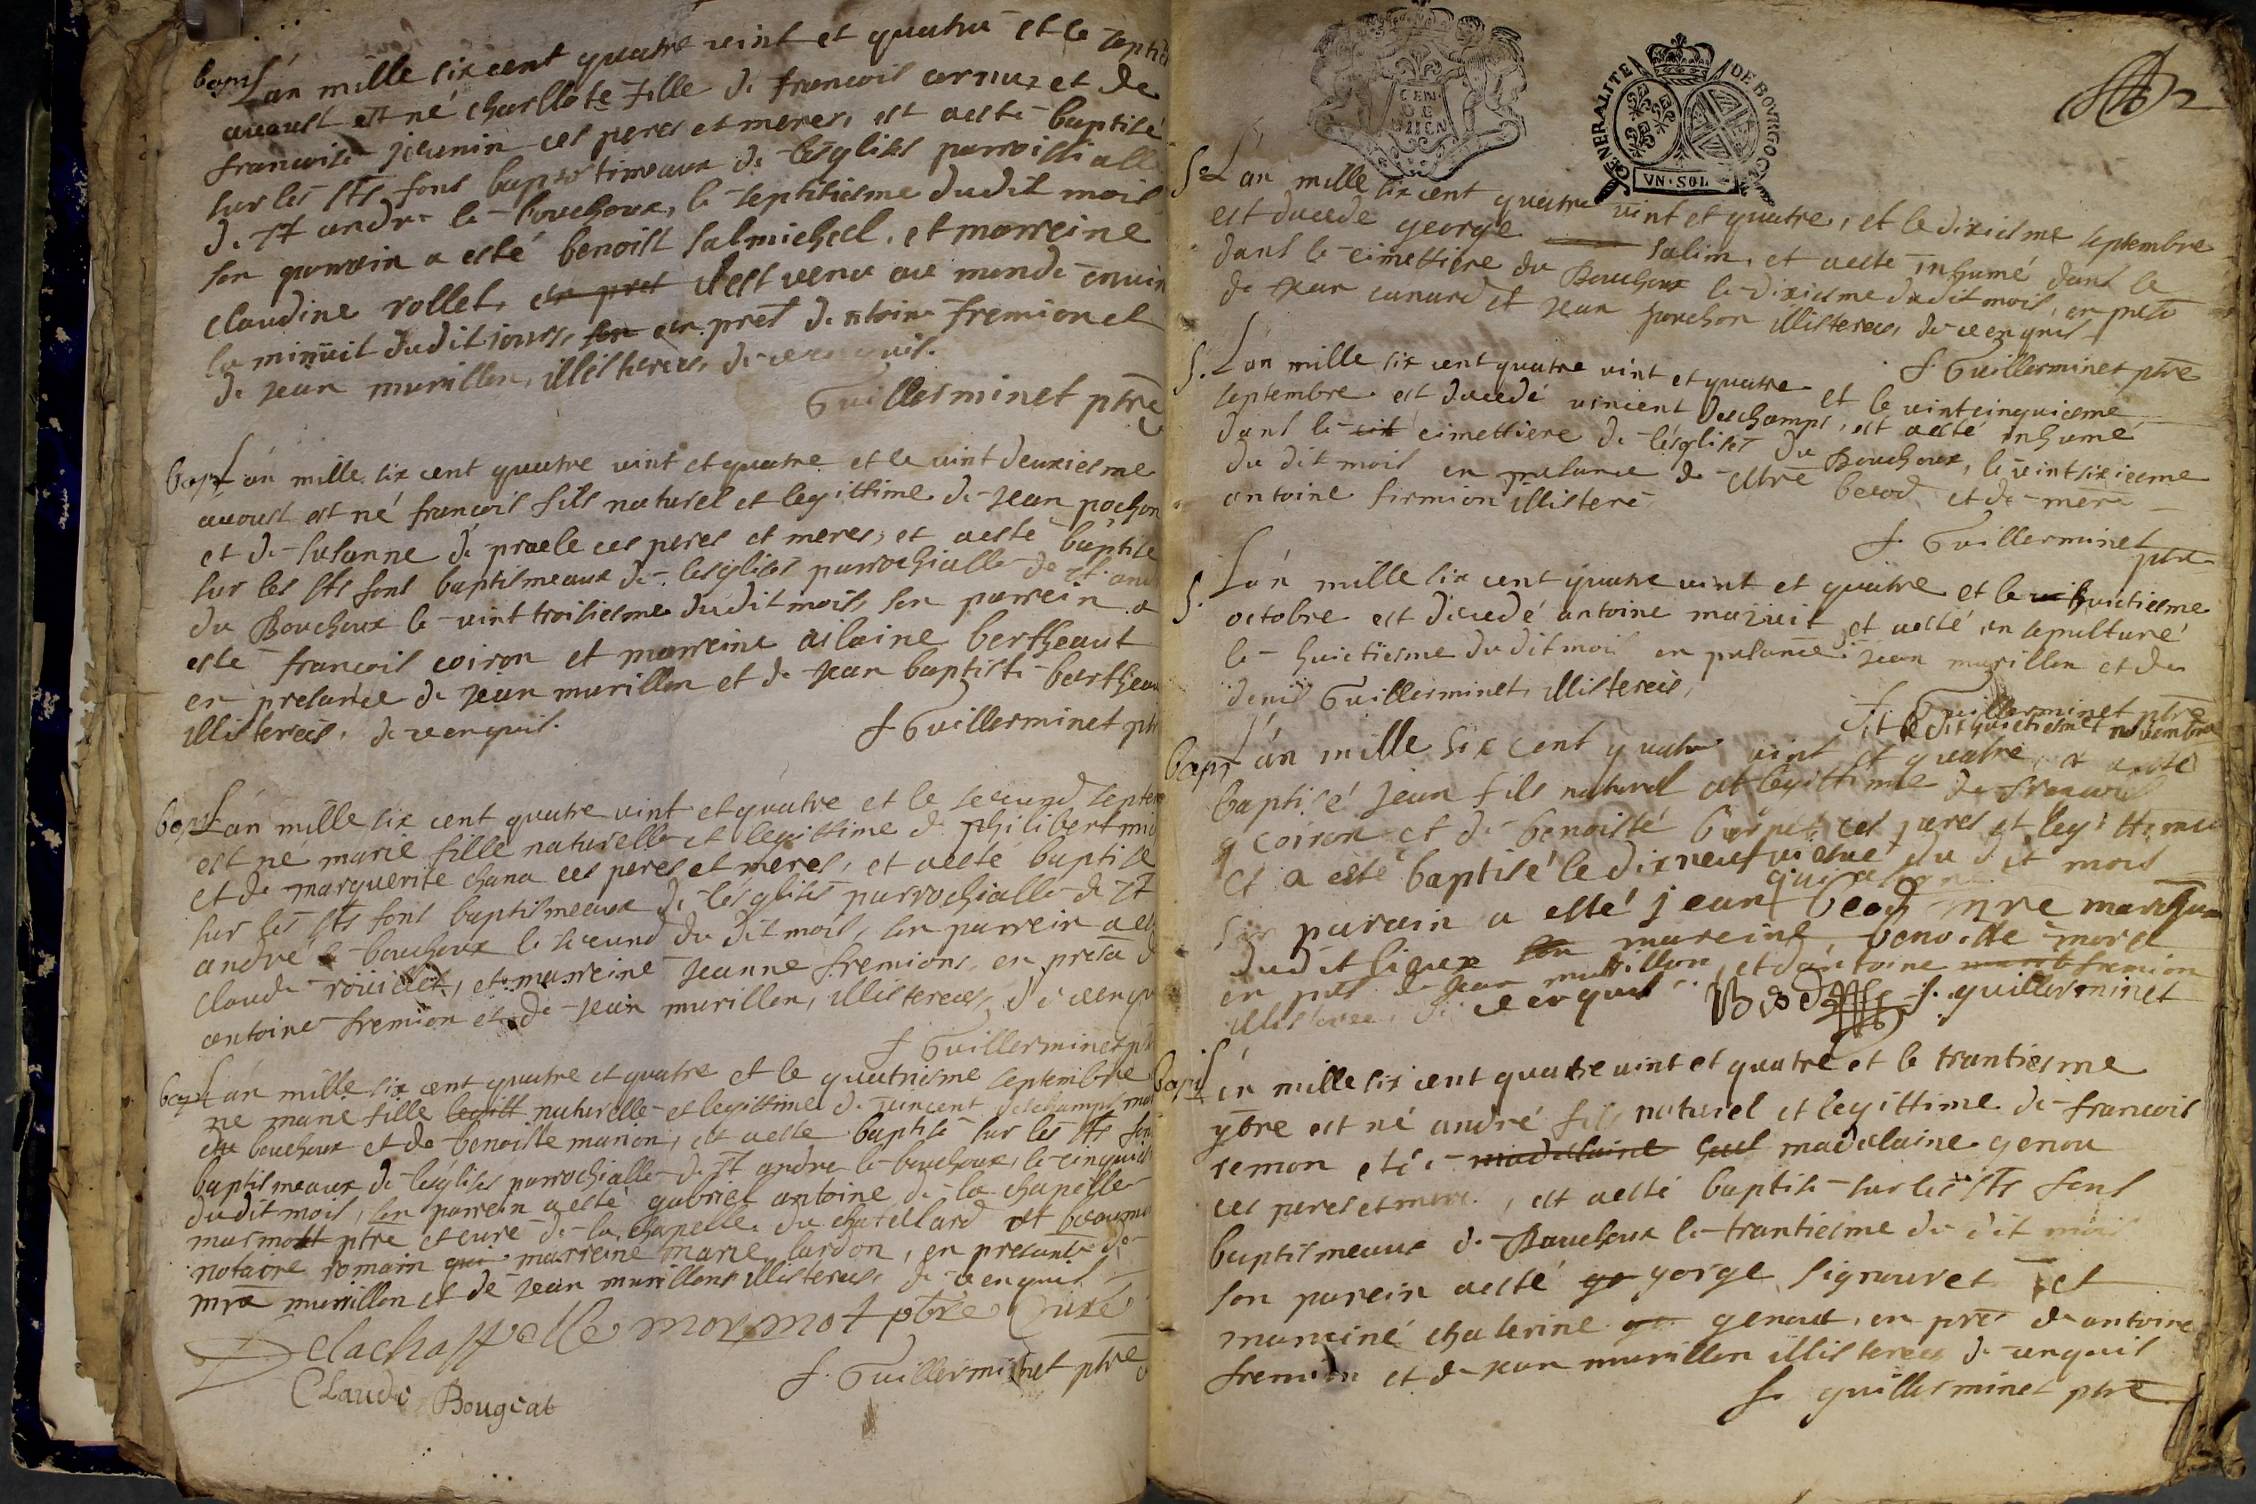 bapt L'an mille six cent quatre vint et quatre et le septi
avoust est né charllote fille de francois cornuz et de
francoise jeunin ces peres et meres, est aesté baptisé
sur les sts fons baptistimeaux de l'esglises parroissialle
de st andre le bouchoux, le septiesme dudit mois
son parrain a esté benoist salmichel, et marreine
claudine rollet, en pret il est venu au monde envin
la minuit dudit jours, son en pres d'antoine fremion et
de jean murillon, illisterees, de ce enquis.
Guillerminet ptre
bapt L'an mille six cent quatre vint et quatre et le vint deuxiesme
avoust est né francois fils naturel et legittime de jean pochon
et de susanne de praele ces peres et meres, et aesté baptise
sur les sts fons baptismeaux de lesglises parrochialle de st and
du Bouchoux le vint troisiesme dudit mois, son parrein a
esté francois coiron et marreine ailaine bertheaut
en presance de jean murillon et de jean baptiste bertheau
illisterees, de ce enquis.
f Guillerminet ptr
bapt L'an mille six cent quatre vint et quatre et le second septem
est né marie fille naturelle et legittime de philibert mi
et de marguerite chana ces peres et meres, et aesté baptise
sur les sts fons baptismeaux de lésglises parrochialle de st
andré le bouchoux le second du dit mois, son parrein a es
claude rouillet, et marreine jeanne fremions, en presa d
antoine fremion et de jean murillon, illisterees, de ce enqu
f Guillerminet pt
bapt L'an mille six cent quatre et quatre et le quatriesme septembre
ne marie fille legitt naturelle et legittime de vincent deschamps mar
du bouchoux et de benoiste marion, et aesté baptisé sur les sts fon
baptismeaux de lésglises parrochialle de st andre le bouchoux, le cinquies
dudit mois, son parrein a esté gabriel antoine de la chapelle
marmott ptre et curé de la chapelle du chatellard et beaumo
notaire romain qui marreine marie lardon, en presante de
mre murillon et de jean murillons illisterees, de ce enquis
Delachappelle mormot ptre Curé
f. Guillerminet ptre
CLaude Bougeat
GEN
DE
DIION
GENERALITE DE BOVRGOGNE
VN·SOL
2
Se L'an mille six cent quatre vint et quatre, et le dixiesme septembre
est decede george salin, et aesté inhumé dans le
dans le cimettiere du Bouchoux le dixiesme dudit mois, en prese
de jean canard et jean pouchon illisterees, de ce enquis
f Guillerminet ptre
S. L'an mille six cent quatre vint et quatre et le vintcinquiesme
septembre est decedé vincent deschamps, est aesté inhumé
dans le cit cimettiere de l'ésglises du Bouchoux, le vintsixiesme
du dit mois en presance de mtre beod et de mere
antoine firmion illisteré
f. Guillerminet
ptre
S. L'an mille six cent quatre vint et quatre et le huictiesme
octobre est decedé antoine mazuit, et aesté en sepulturé
le huictiesme du dit mois en presance jean murillon et de
denis Guillerminet, illisterees,
f. Guillerminet ptre
et le dit huictiesme novembre
bapt L'an mille six cent quatre vint et quatre a esté
baptisé jean fils naturel et legittime de francois
coiron et de benoisté ces peres et legittimes
et a esté baptisé le dixneufviesme du dit mois
son parain a esté jean beod mre marchan
dudit lieux son mareine, benoitte morel
en pres de jean murillon, et d'antoine fremion
illisterees, de ce enquis. Beod f. guillerminet
bapt L'en mille six cent quatre vint et quatre et le trantiesme
9bre est né andré fils naturel et legittime de francois
remon et de madelaine madelaine genou
ces peres et mere, est aesté baptisé sur les sts fons
baptismeaux de Bouchoux le trantiesme du dit mois
son parein aesté go gorge signouret et
marreine chaterine genout, en pres de antoine
fremion et de jean murillon illisterees de enquis
f. guillerminet ptre